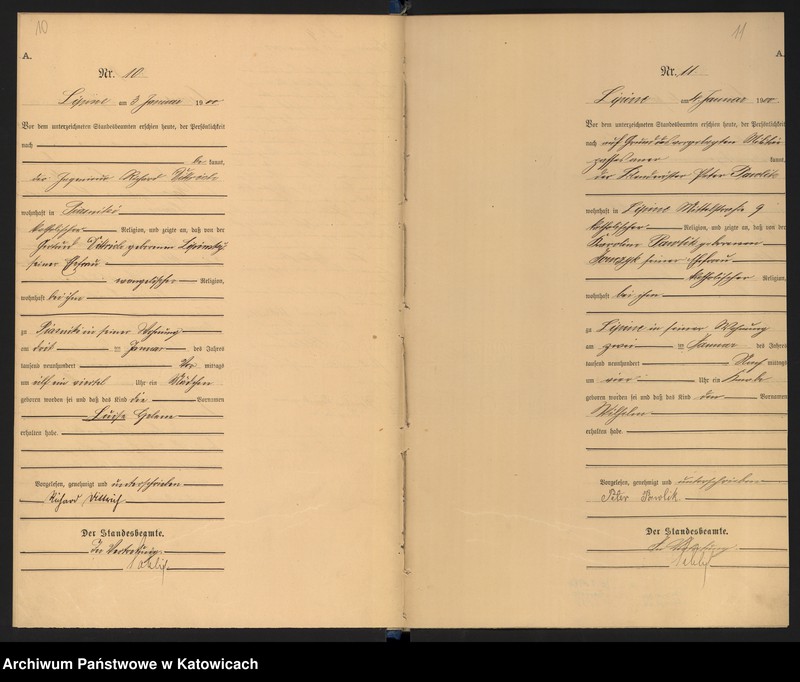 10
A.
Nr. 10
Lipine am 3 Januar 1900
Vor dem unterzeichneten Standesbeamten erschien heute, der Persönlichkeit
nach
be kannt,
der Ingenieur Richard Dittrich
wohnhaft in Piasniki
katholischer Religion, und zeigte an, daß von der
Gertrud Dittrich geborenen
seiner Ehefrau
evangelischer Religion,
wohnhaft bei ihm
zu Piasniki in seiner Wohnung
am drei ten Januar des Jahres
tausend neunhundert Vor mittags
um elf ein viertel Uhr ein Mädchen
geboren worden sei und daß das Kind die Vornamen
Luise Helene
erhalten habe.
Vorgelesen, genehmigt und unterschrieben
Richard Dittrich
Der Standesbeamte.
In Vertretung.
11
A.
Nr. 11
Lipine am 4 Januar 1900
Vor dem unterzeichneten Standesbeamten erschien heute, der Persönlichkeit
nach auf Grund des vorgelegten Militär
passes aner kannt,
der Peter Pawlik
wohnhaft in Lipine Mittelstraße 9
katholischer Religion, und zeigte an, daß von der
Karoline Pawlik geborenen
Tomczyk seiner Ehefrau
katholischer Religion,
wohnhaft bei ihm
zu Lipine in seiner Wohnung
am zwei ten Januar des Jahres
tausend neunhundert Nach mittags
um vier Uhr ein Knabe
geboren worden sei und daß das Kind den Vornamen
Wilhelm
erhalten habe.
Vorgelesen, genehmigt und unterschrieben
Peter Pawlik.
Der Standesbeamte.
In Vertretung.
Archiwum Państwowe w Katowicach